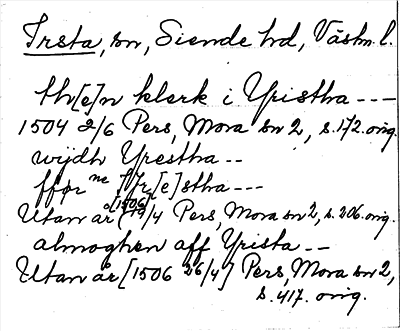 Irsta, sn, Siende hd, Västm. l.
th[e]n klerk i Yristha ---
1504 2/6 Pers, Mora sn 2, s. 172. orig.
wijdh Yrestha --
ffør ne Yr[e]stha ---
Utan år [1506] 19/4 Pers, Mora sn 2, s. 206. orig.
almoghen aff Yrista --
Utan år [1506 26/4] Pers, Mora sn 2,
s. 417. orig.